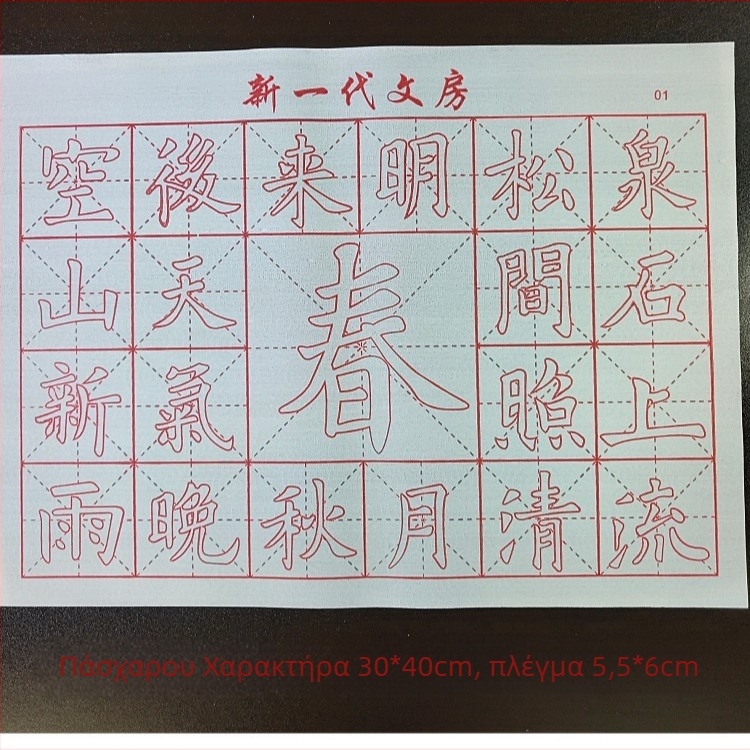 新一代文房
01
空後来明松泉
山天春間石
新氣照上
雨晚秋月清流
Πάσχαρου Χαρακτήρα 30*40cm, πλέγμα 5,5*6cm